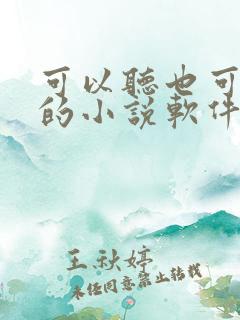 可以聽也可
的小説軟件
王秋婷
未经同意禁止转载